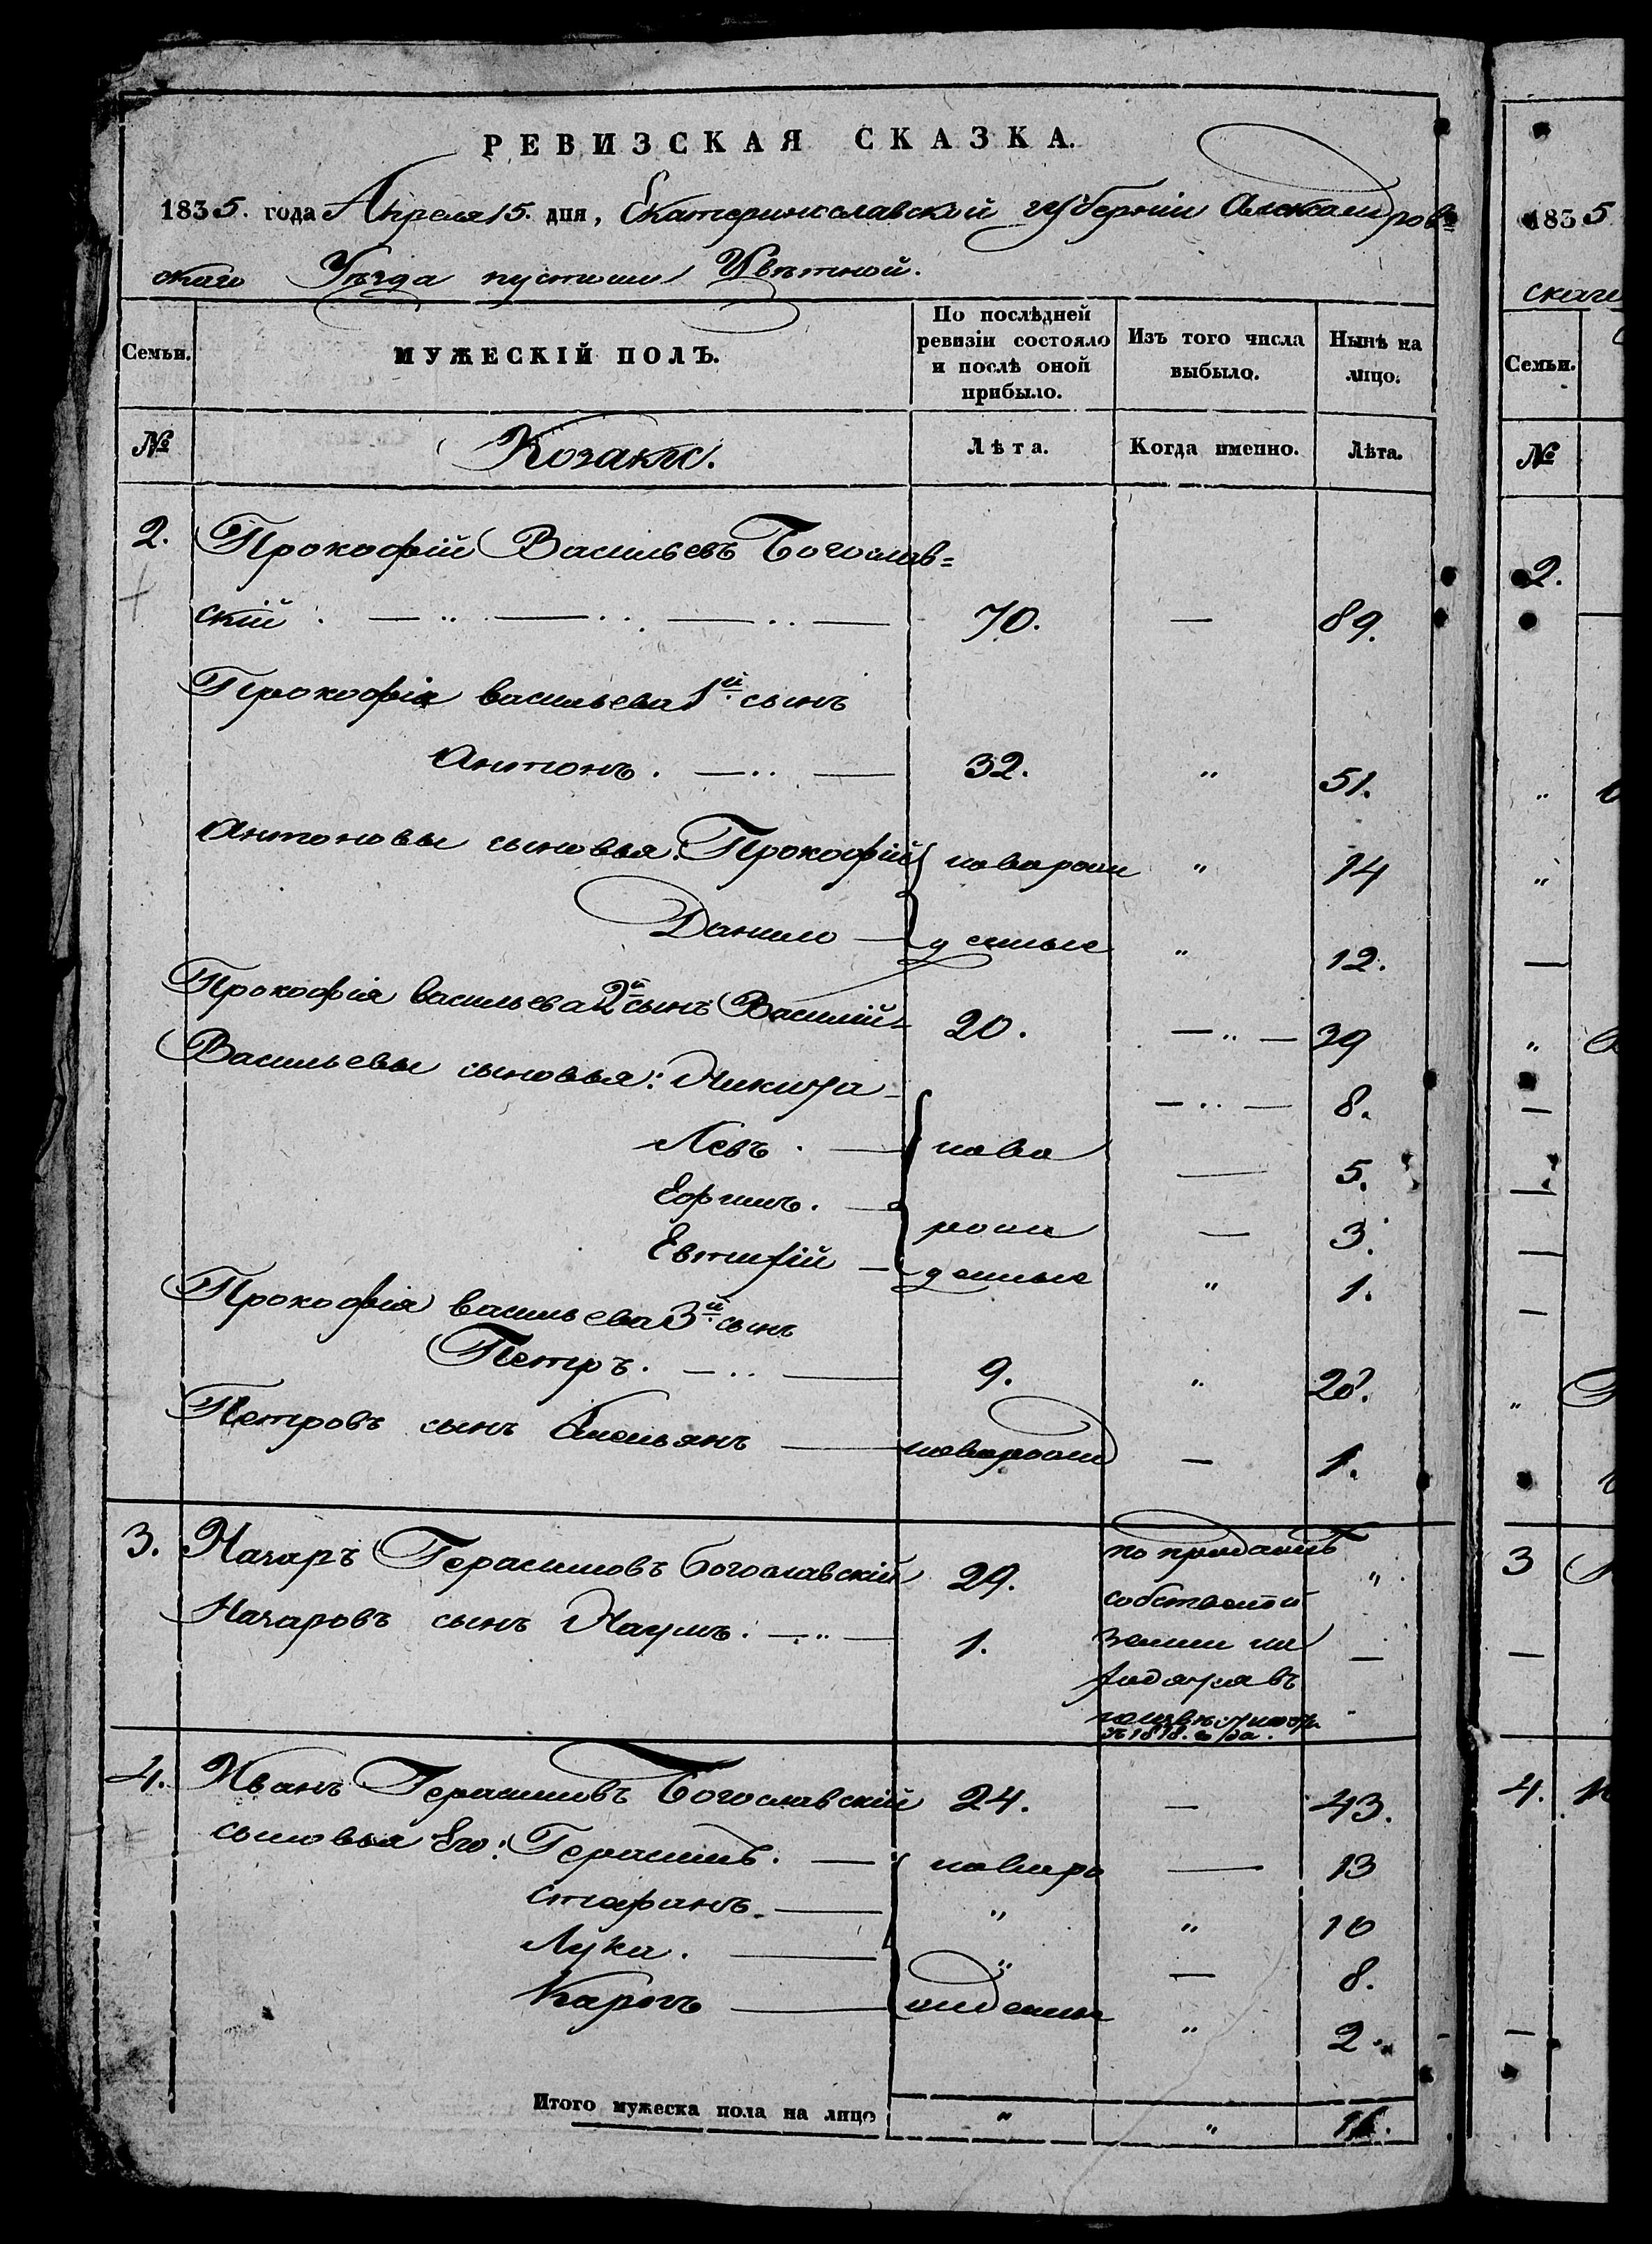 РЕВИЗСКАЯ СКАЗКА.
1835. года Апреля 15. дня, Екатеринославской губерніи Александров=
скаго Уѣзда пустоши Цвѣтной.
Семьи.
МУЖЕСКІЙ ПОЛЪ.
По послѣдней ревизіи состояло и послѣ оной прибыло.
Изъ того числа выбыло.
Нынѣ на лицо.
№
Козаки.
Лѣта.
Когда именно.
Лѣта.
2. Прокофій Васильевъ Богослав=
скій 70. — 89.
Прокофія васильева 1й сынъ
Антонъ. 32. " 51.
Антоновы сыновья: Прокофій новорож " 14
Данило — денные " 12.
Прокофія васильева 2й сынъ Василий 20. 39
Васильевы сыновья: Никита 8.
Левъ. — ново 5.
Ефимъ. — рож 3.
Евтифій — денные " 1.
Прокофія васильева 3й сынъ
Петръ. 9. " 28.
Петровъ сынъ Емельянъ — новорожд — 1.
3. Назаръ Герасимовъ Богославскій 29. по продажѣ "
Назаровъ сынъ Наумъ. 1. собственной
земли —
въ
съ 1818. года.
4. Иванъ Герасимовъ Богославскій 24. — 43.
сыновья Его: Герасимъ. — новоро — 13
Стефанъ. — " " 10
Лука. — " — 8.
Карпъ — жденные " 2.
Итого мужеска пола на лицо " "
1835
скаго
Семьи.
№
2.
3
4.